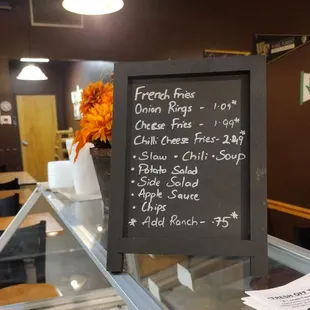 French Fries
Onion Rings - 1.09*
Cheese Fries - 1.99*
Chili Cheese Fries - 2.49*
• Slaw • Chili • Soup
• Potato Salad
• Side Salad
• Apple Sauce
• Chips
*Add Ranch - .75*
FRESH OFF